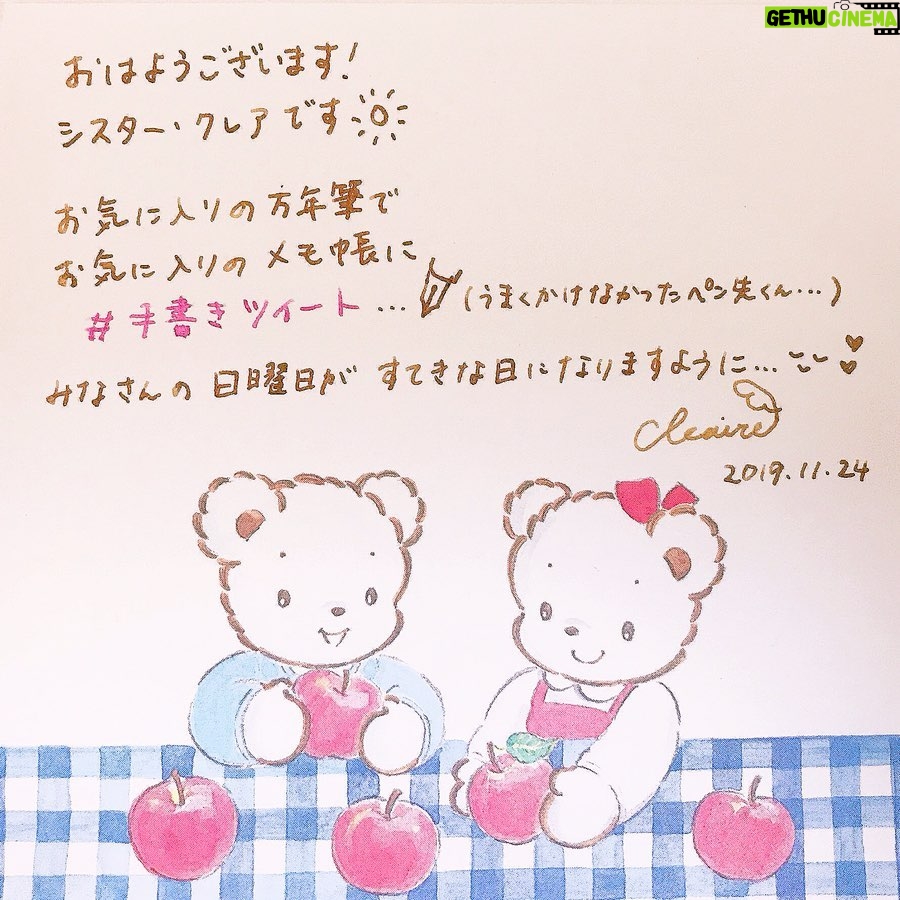 GETHUCINEMA
おはようございます!
シスター・クレアです
お気に入りの万年筆で
お気に入りのメモ帳に
#手書きツイート...(うまくかけなかったペン先くん...)
みなさんの日曜日がすてきな日になりますように...
Cleaire
2019.11.24